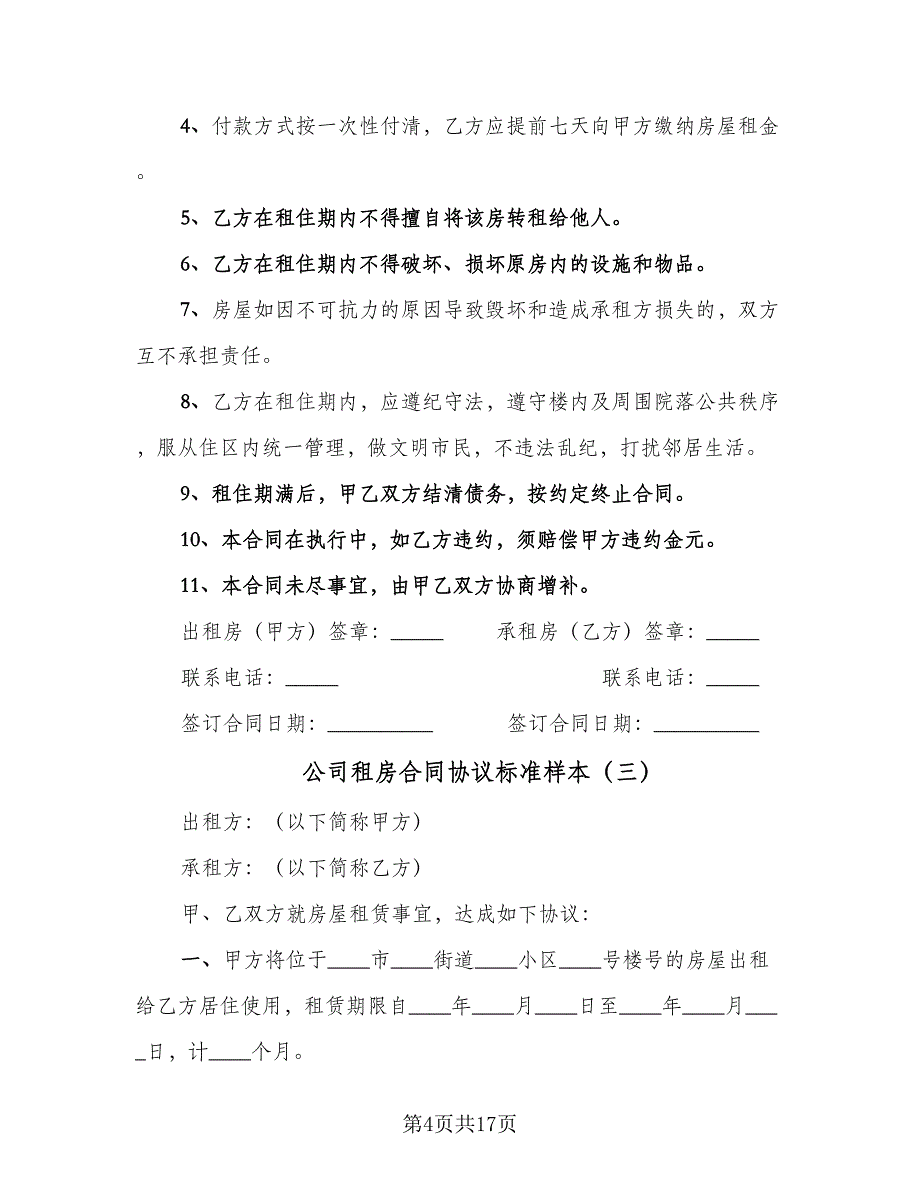 4、付款方式按一次性付清，乙方应提前七天向甲方缴纳房屋租金
。
5、乙方在租住期内不得擅自将该房转租给他人。
6、乙方在租住期内不得破坏、损坏原房内的设施和物品。
7、房屋如因不可抗力的原因导致毁坏和造成承租方损失的，双方
互不承担责任。
8、乙方在租住期内，应遵纪守法，遵守楼内及周围院落公共秩序
，服从住区内统一管理，做文明市民，不违法乱纪，打扰邻居生活。
9、租住期满后，甲乙双方结清债务，按约定终止合同。
10、本合同在执行中，如乙方违约，须赔偿甲方违约金元。
11、本合同未尽事宜，由甲乙双方协商增补。
出租房（甲方）签章：_____ 承租房（乙方）签章：_____
联系电话：_____ 联系电话：_____
签订合同日期：__________ 签订合同日期：__________
公司租房合同协议标准样本（三）
出租方：（以下简称甲方）
承租方：（以下简称乙方）
甲、乙双方就房屋租赁事宜，达成如下协议：
一、甲方将位于____市____街道____小区____号楼号的房屋出租
给乙方居住使用，租赁期限自____年____月____日至____年____月___
_日，计____个月。
第4页共17页